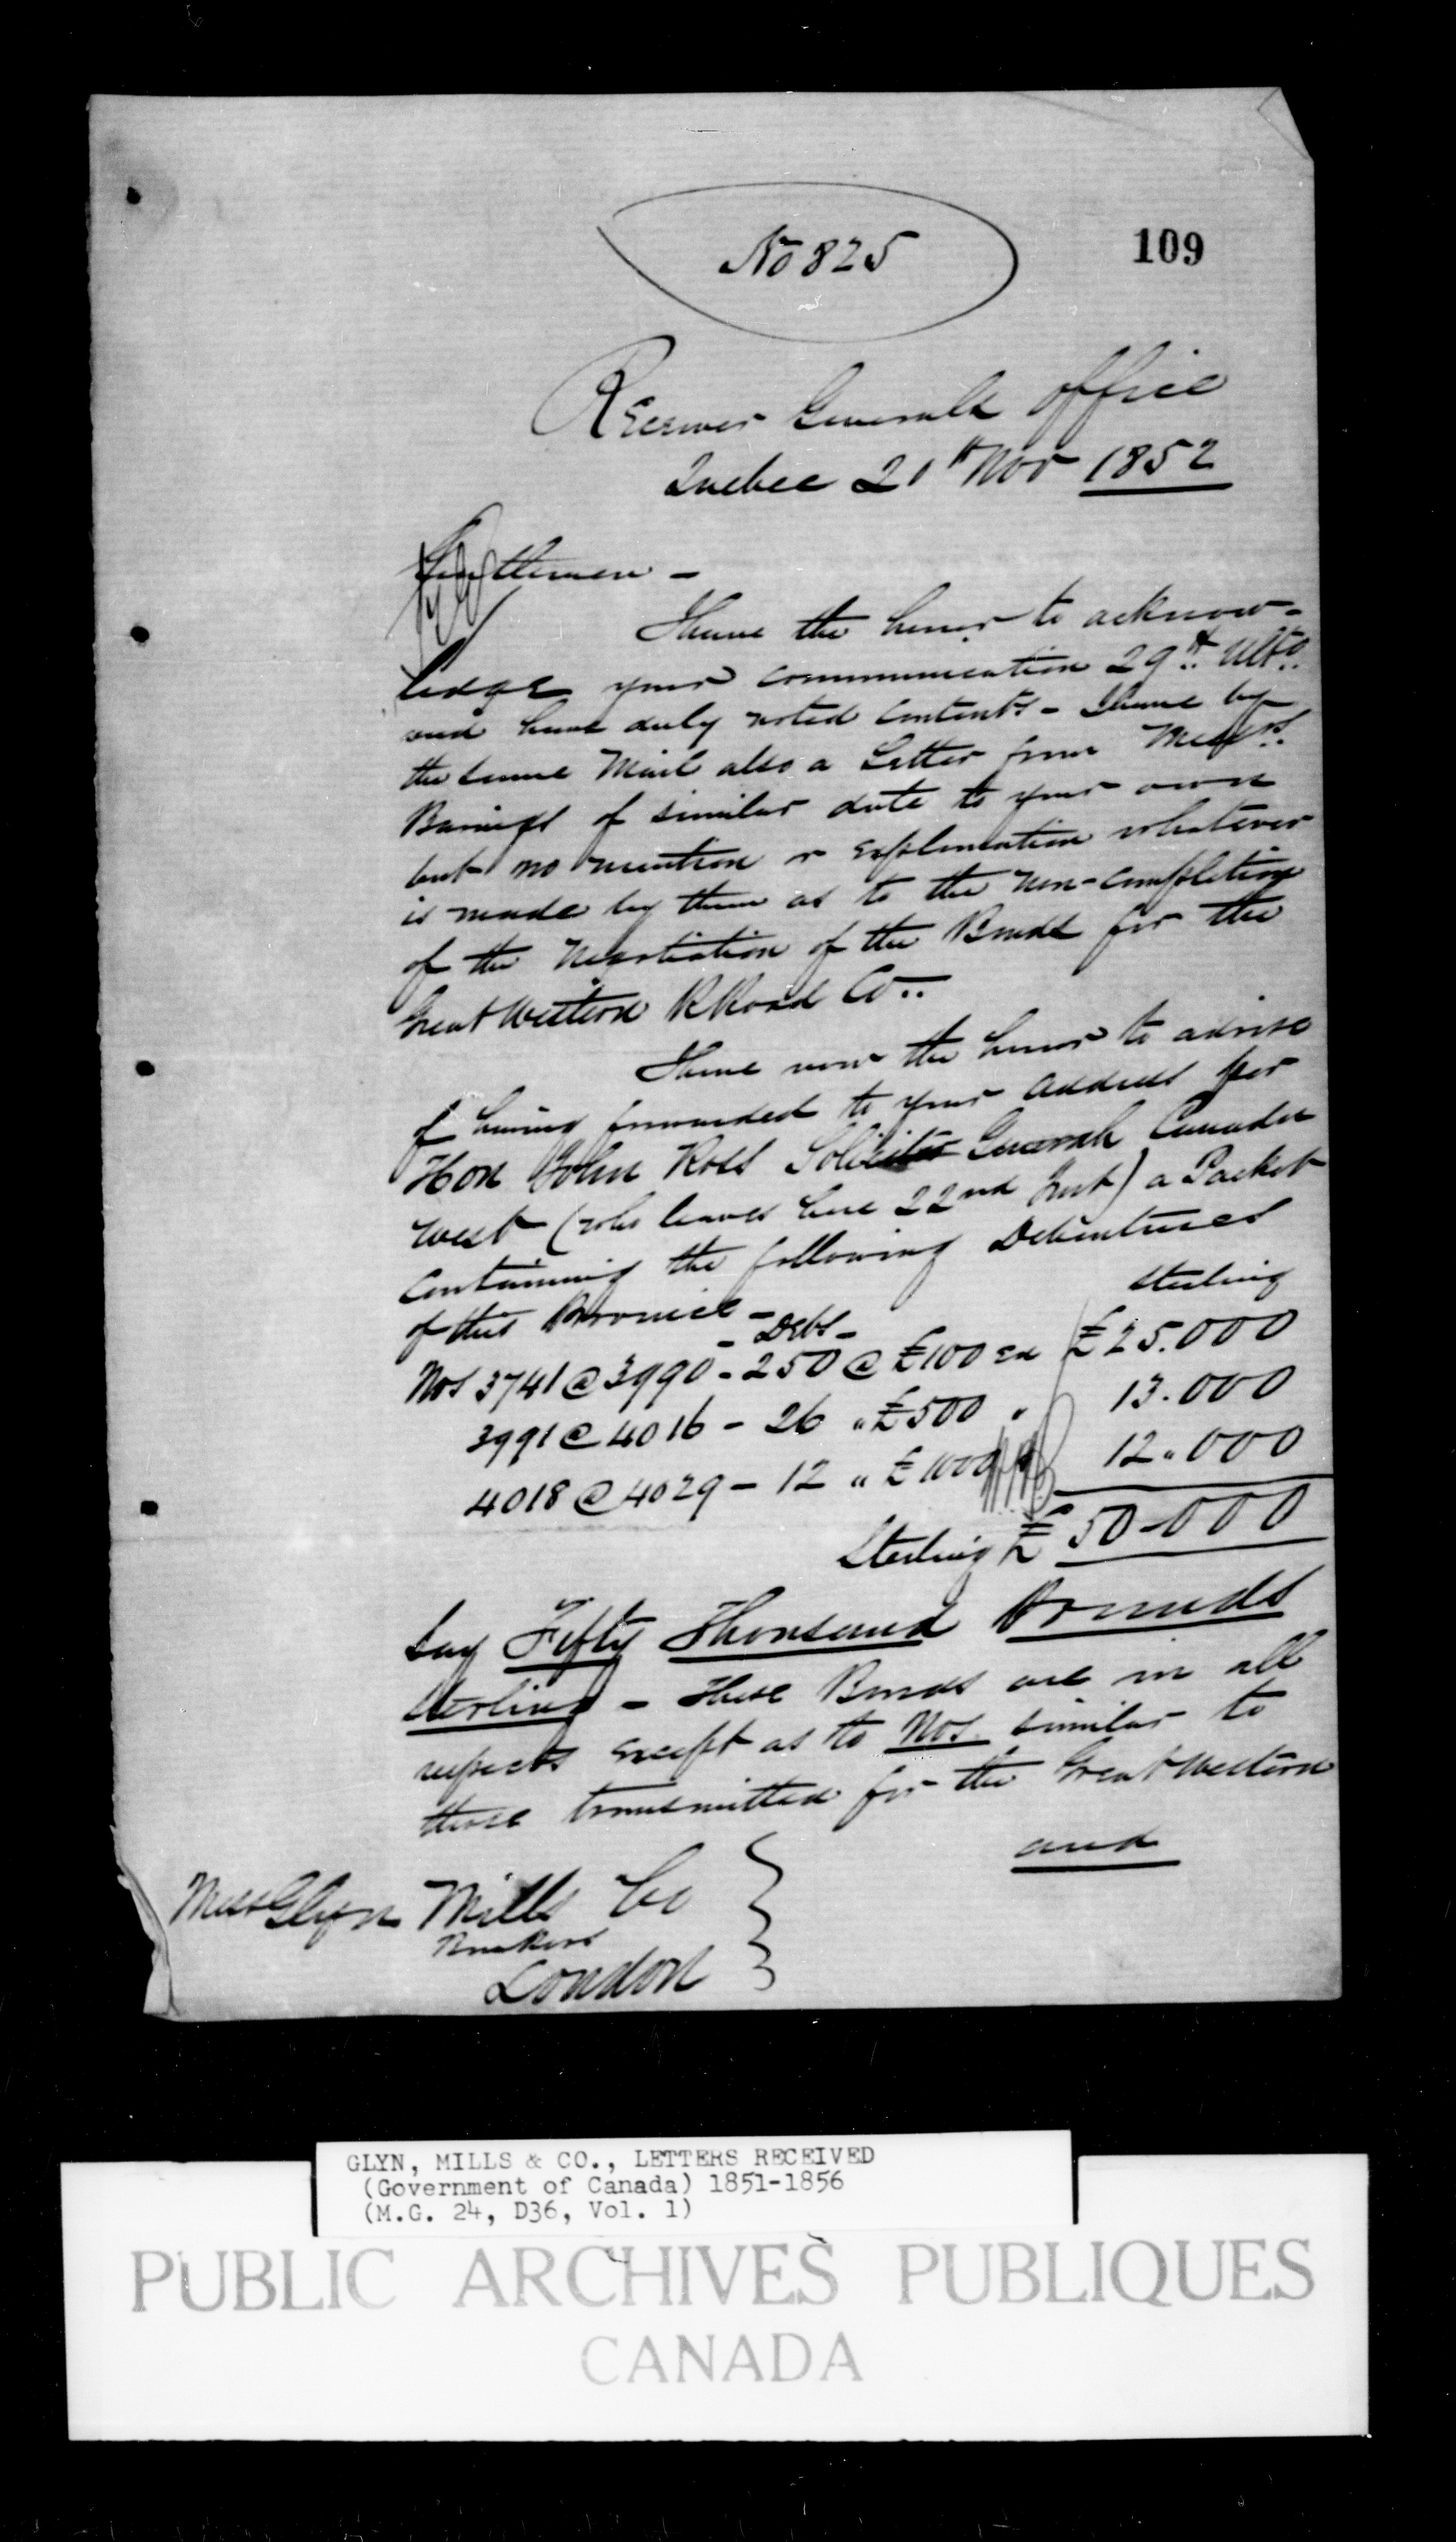 No 825
109
Receiver Generals Office
Quebec 20th Nov 1852
Gentlemen -
I have the honor to acknow-
ledge your communication 29th Ulto.
and have duly noted contents - I have by
the same Mail also a Letter from Messrs.
Barings of similar date to your own
but no mention or explanation whatever
is made by them as to the non-completion
of the Negotiation of the Bonds for the
Great Western RRoad Co..
I have now the honor to advise
of having forwarded to your address per
Hon John Ross Solicitor General Canada
West (who leaves here 22nd Inst) a Packet
containing the following Debentures
of this Province -
sterling
- Debs -
Nos 3741 @ 3990 - 250 @ £100 ea £25.000
3991 @ 4016 - 26 " £500 " 13.000
4018 @ 4029 - 12 " £1000 12.000
Sterling £ 50-000
Say Fifty Thousand Pounds
Sterling - These Bonds are in all
respects except as to Nos. similar to
those transmitted for the Great Western
and
Messrs Glyn Mills Co
Bankers
London
GLYN, MILLS & CO., LETTERS RECEIVED
(Government of Canada) 1851-1856
(M.G. 24, D36, Vol. 1)
PUBLIC ARCHIVES PUBLIQUES
CANADA